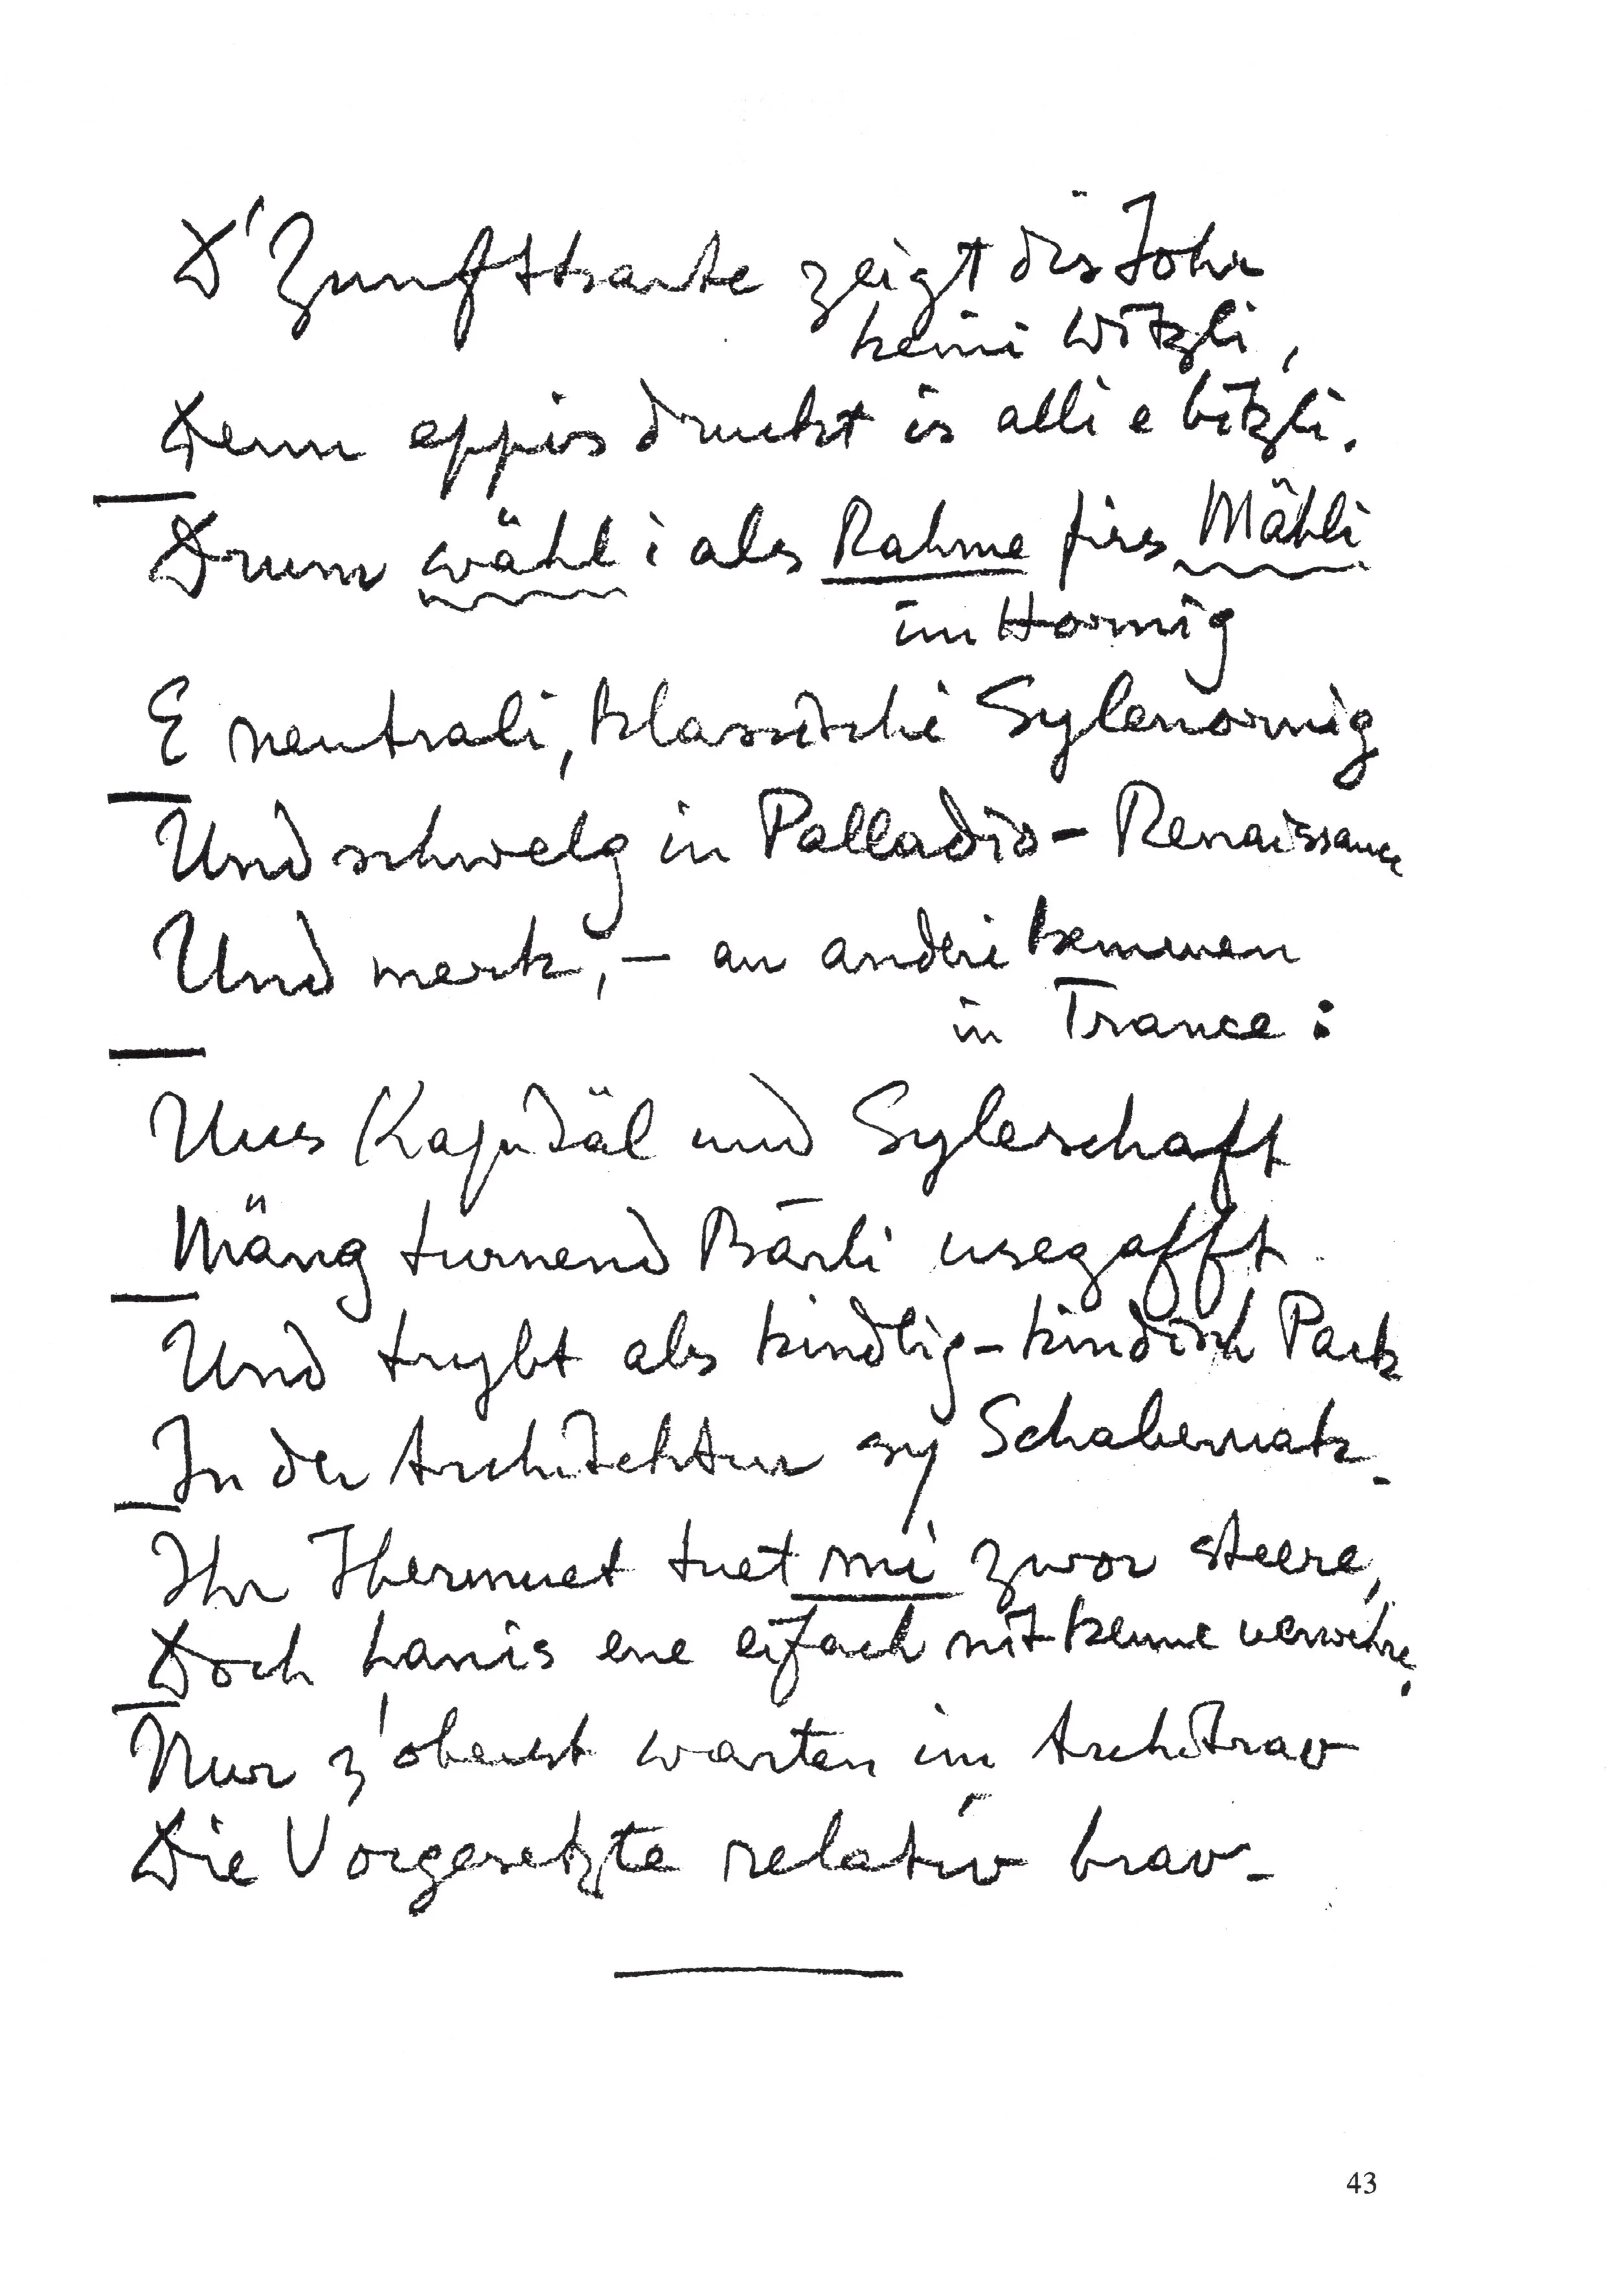 D'Zunftkarte zeigt dis Johr
keini Witzli,
Denn eppis druckt is alli e bitzli.
Drum wähl i als Rahme firs Mähli
im Hornig
E neutrali, klassischi Sylenornig
Und schwelg in Palladio-Renaissance
Und merk, – au anderi kemmen
in Trance:
Uus Kapitäl und Syleschaft
Mäng turnend Bärli usegafft.
Und trybt als kindlig-kindisch Pack
In der Architektur sy Schabernack.
Ihr Ibermuet tuet mi zwor steere,
Doch hanis ene eifach nit kenne verwehre.
Nur z'oberst warten im Architrav
Die Vorgesetzte relativ brav.
43